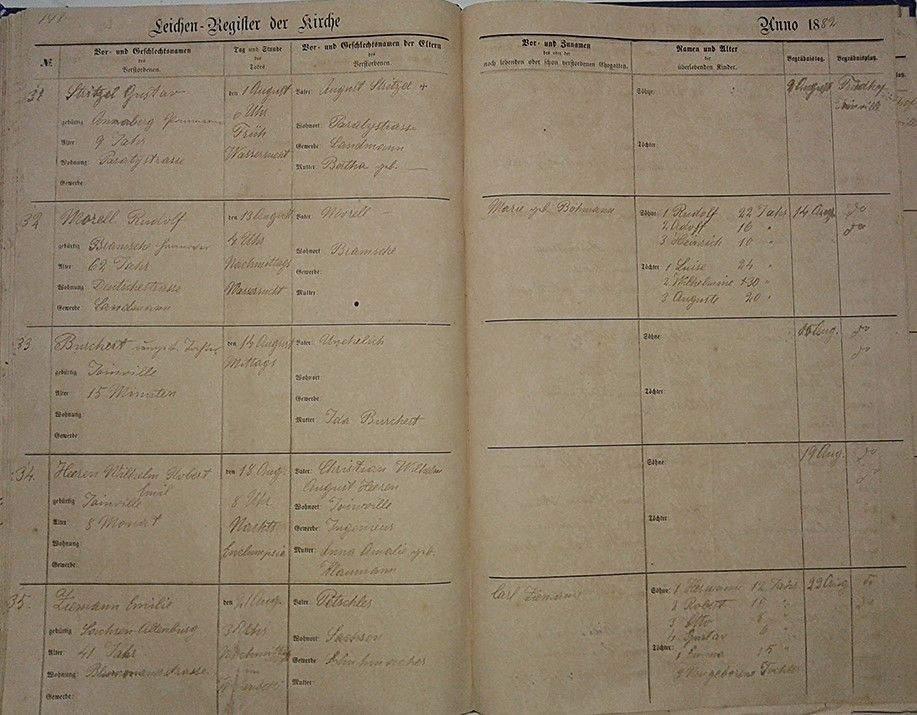 148
Leichen-Register der Kirche
Anno 1882
№
Vor- und Geschlechtsnamen
des
Verstorbenen.
Tag und Stunde
des
Todes
Vor- und Geschlechtsnamen der Eltern
des
Verstorbenen.
Vor- und Zunamen
des oder der
noch lebenden oder schon verstorbenen Ehegatten.
Namen und Alter
der
überlebenden Kinder.
Begräbnistag.
Begräbnisplatz.
31
Stritzel Gustav
gebürtig Annaberg
Alter 9 Jahr
Wohnung: Paratystrasse
Gewerbe:
den 1 August
6 Uhr
Früh
Wassersucht
Vater: August Stritzel +
Wohnort: Paratystrasse
Gewerbe: Landmann
Mutter: Bertha geb. —
Söhne:
Töchter
2 August
Friedhof
Joinville
32
Morell Rudolf
gebürtig Bramsche Hannover
Alter 62 Jahr
Wohnung Deutschestrasse
Gewerbe Landmann
den 13 August
4 Uhr
Nachmittags
Wassersucht
Vater: Morell —
Wohnort Bramsche
Gewerbe:
Mutter:
Marie geb. Bohmann
Söhne 1 Rudolf 22 Jahr
2 Adolf 16 "
3 Heinrich 10 "
Töchter 1 Luise 24 "
2 Wilhelmine +30 "
3 Auguste 20 "
14 Aug.
do
do
33
Burchert unget. Tochter
gebürtig Joinville
Alter 15 Minuten
Wohnung:
Gewerbe
den 14 August
Mittags
Vater: Unehelich
Wohnort
Gewerbe
Mutter Ida Burchert
Söhne:
Töchter:
15 Aug.
do
do
34.
Heeren Wilhelm Robert
Emil
gebürtig Joinville
Alter 8 Monat
Wohnung:
Gewerbe:
den 18 Aug.
8 Uhr
Nachts
Enclampsia
Vater: Christian Wilhelm
August Heeren
Wohnort: Joinville
Gewerbe: Ingenieur
Mutter: Anna Amalie geb.
Klaumann
Söhne:
Töchter:
19 Aug.
do
do
35.
Ziemann Emilie
gebürtig Sachsen Altenburg
Alter: 41 Jahr
Wohnung:
Gewerbe:
den 21 Aug.
3 Uhr
Vater: Pötschler
Wohnort: Sachsen
Gewerbe Schuhmacher
Mutter:
Carl Ziemann
Söhne: 1 Hermann 12 Jahr
2 Robert
3 Otto
4 Gustav
Töchter: 1 Emma 15 "
2 Neugeborene Tochter
22 Aug
do
do